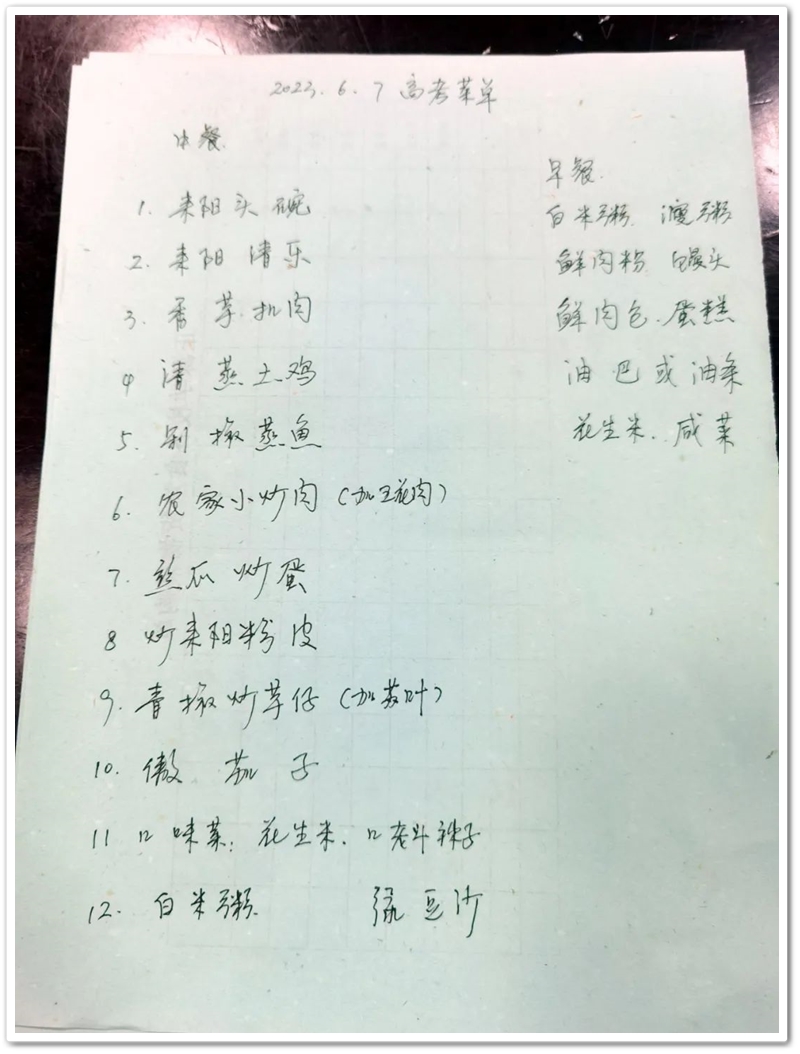 2023.6.7 高考菜单
中餐
1. 耒阳头碗
2. 耒阳清乐
3. 香芋扣肉
4 清蒸土鸡
5. 剁椒蒸鱼
6. 农家小炒肉(加五花肉)
7. 丝瓜炒蛋
8 炒耒阳粉皮
9. 青椒炒芋仔(加苏叶)
10. 茄子
11 口味菜:花生米.辣子
12. 白米粥 绿豆沙
早餐
白米粥 瘦粥
鲜肉粉 馒头
鲜肉包.蛋糕
油巴或油条
花生米.咸菜